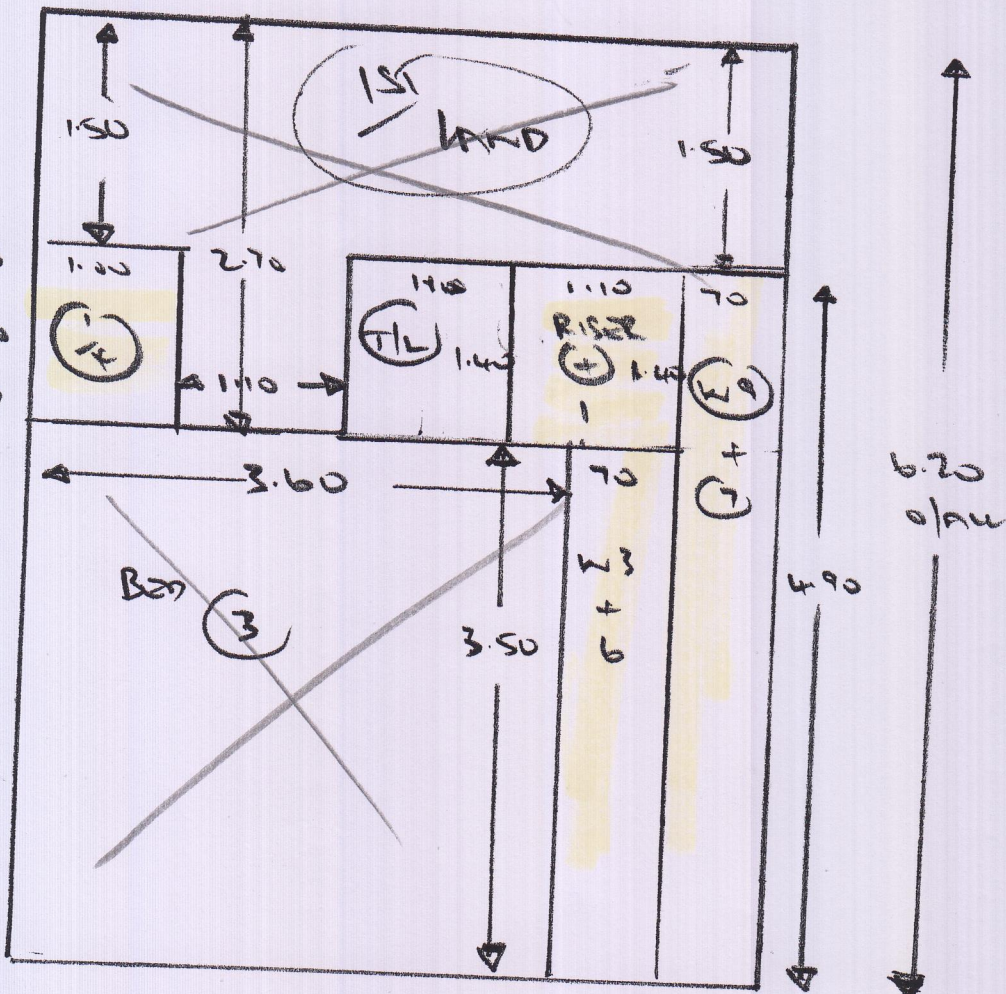 1ST
LAND
1.50
1.50
1.00
2.70
1.10
1.10
70
T/L
1.40
RISER
+
1
1.40
W9
+
7
1.10
3.60
70
BED
3
W3
+
6
3.50
4.90
6.20